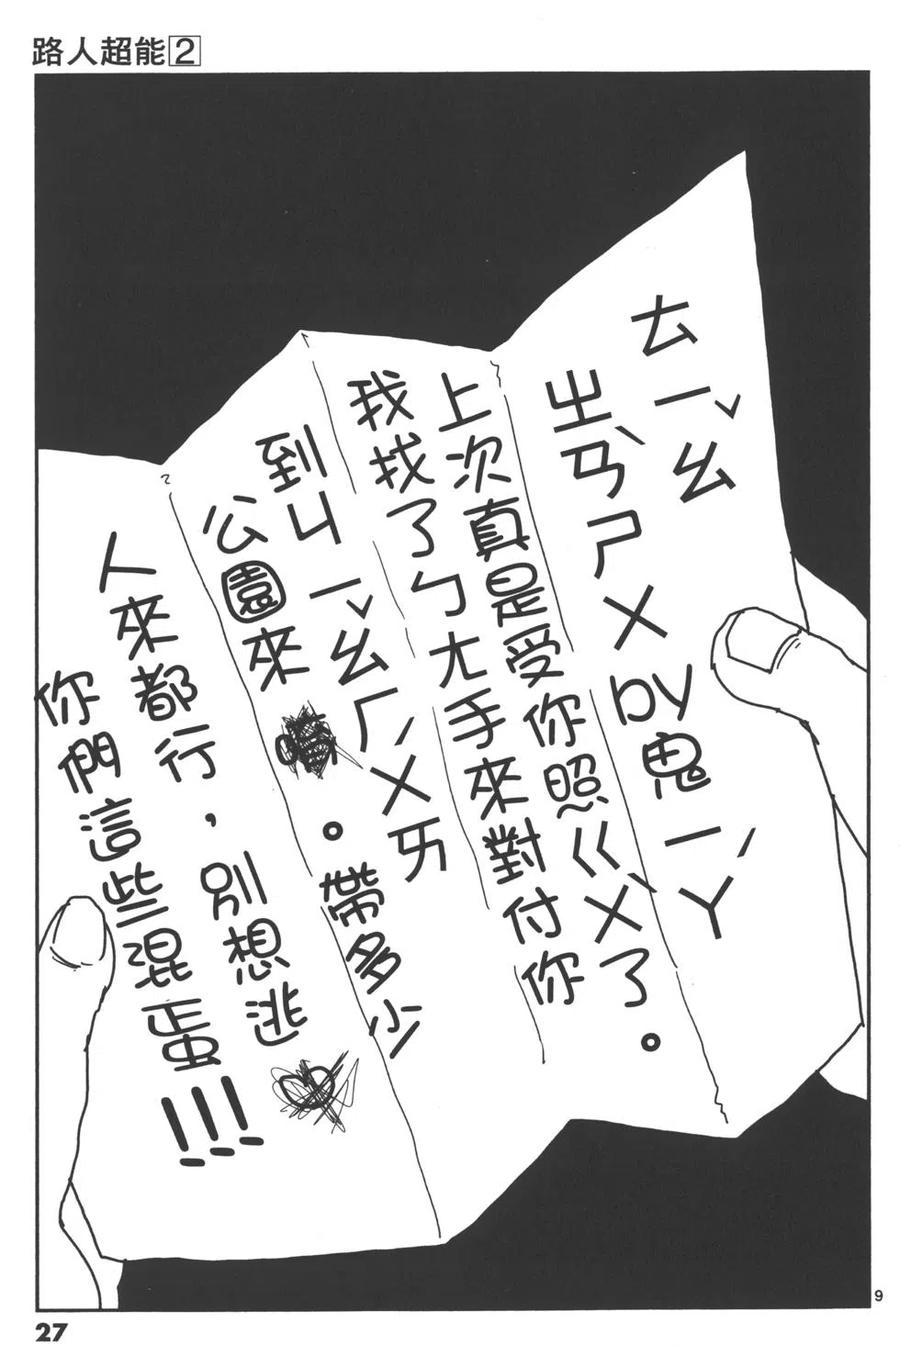 路人超能2
ㄊㄧㄠˇ
ㄓㄢˋㄕㄨby鬼ㄧㄚˊ
上次真是受你照ㄍㄨˋ了。
我找了ㄅㄤ手來對付你
到ㄐㄧㄠˇㄏㄨㄞˊ
公園來。帶多少
人來都行，別想逃
你們這些混蛋!!!
9
27